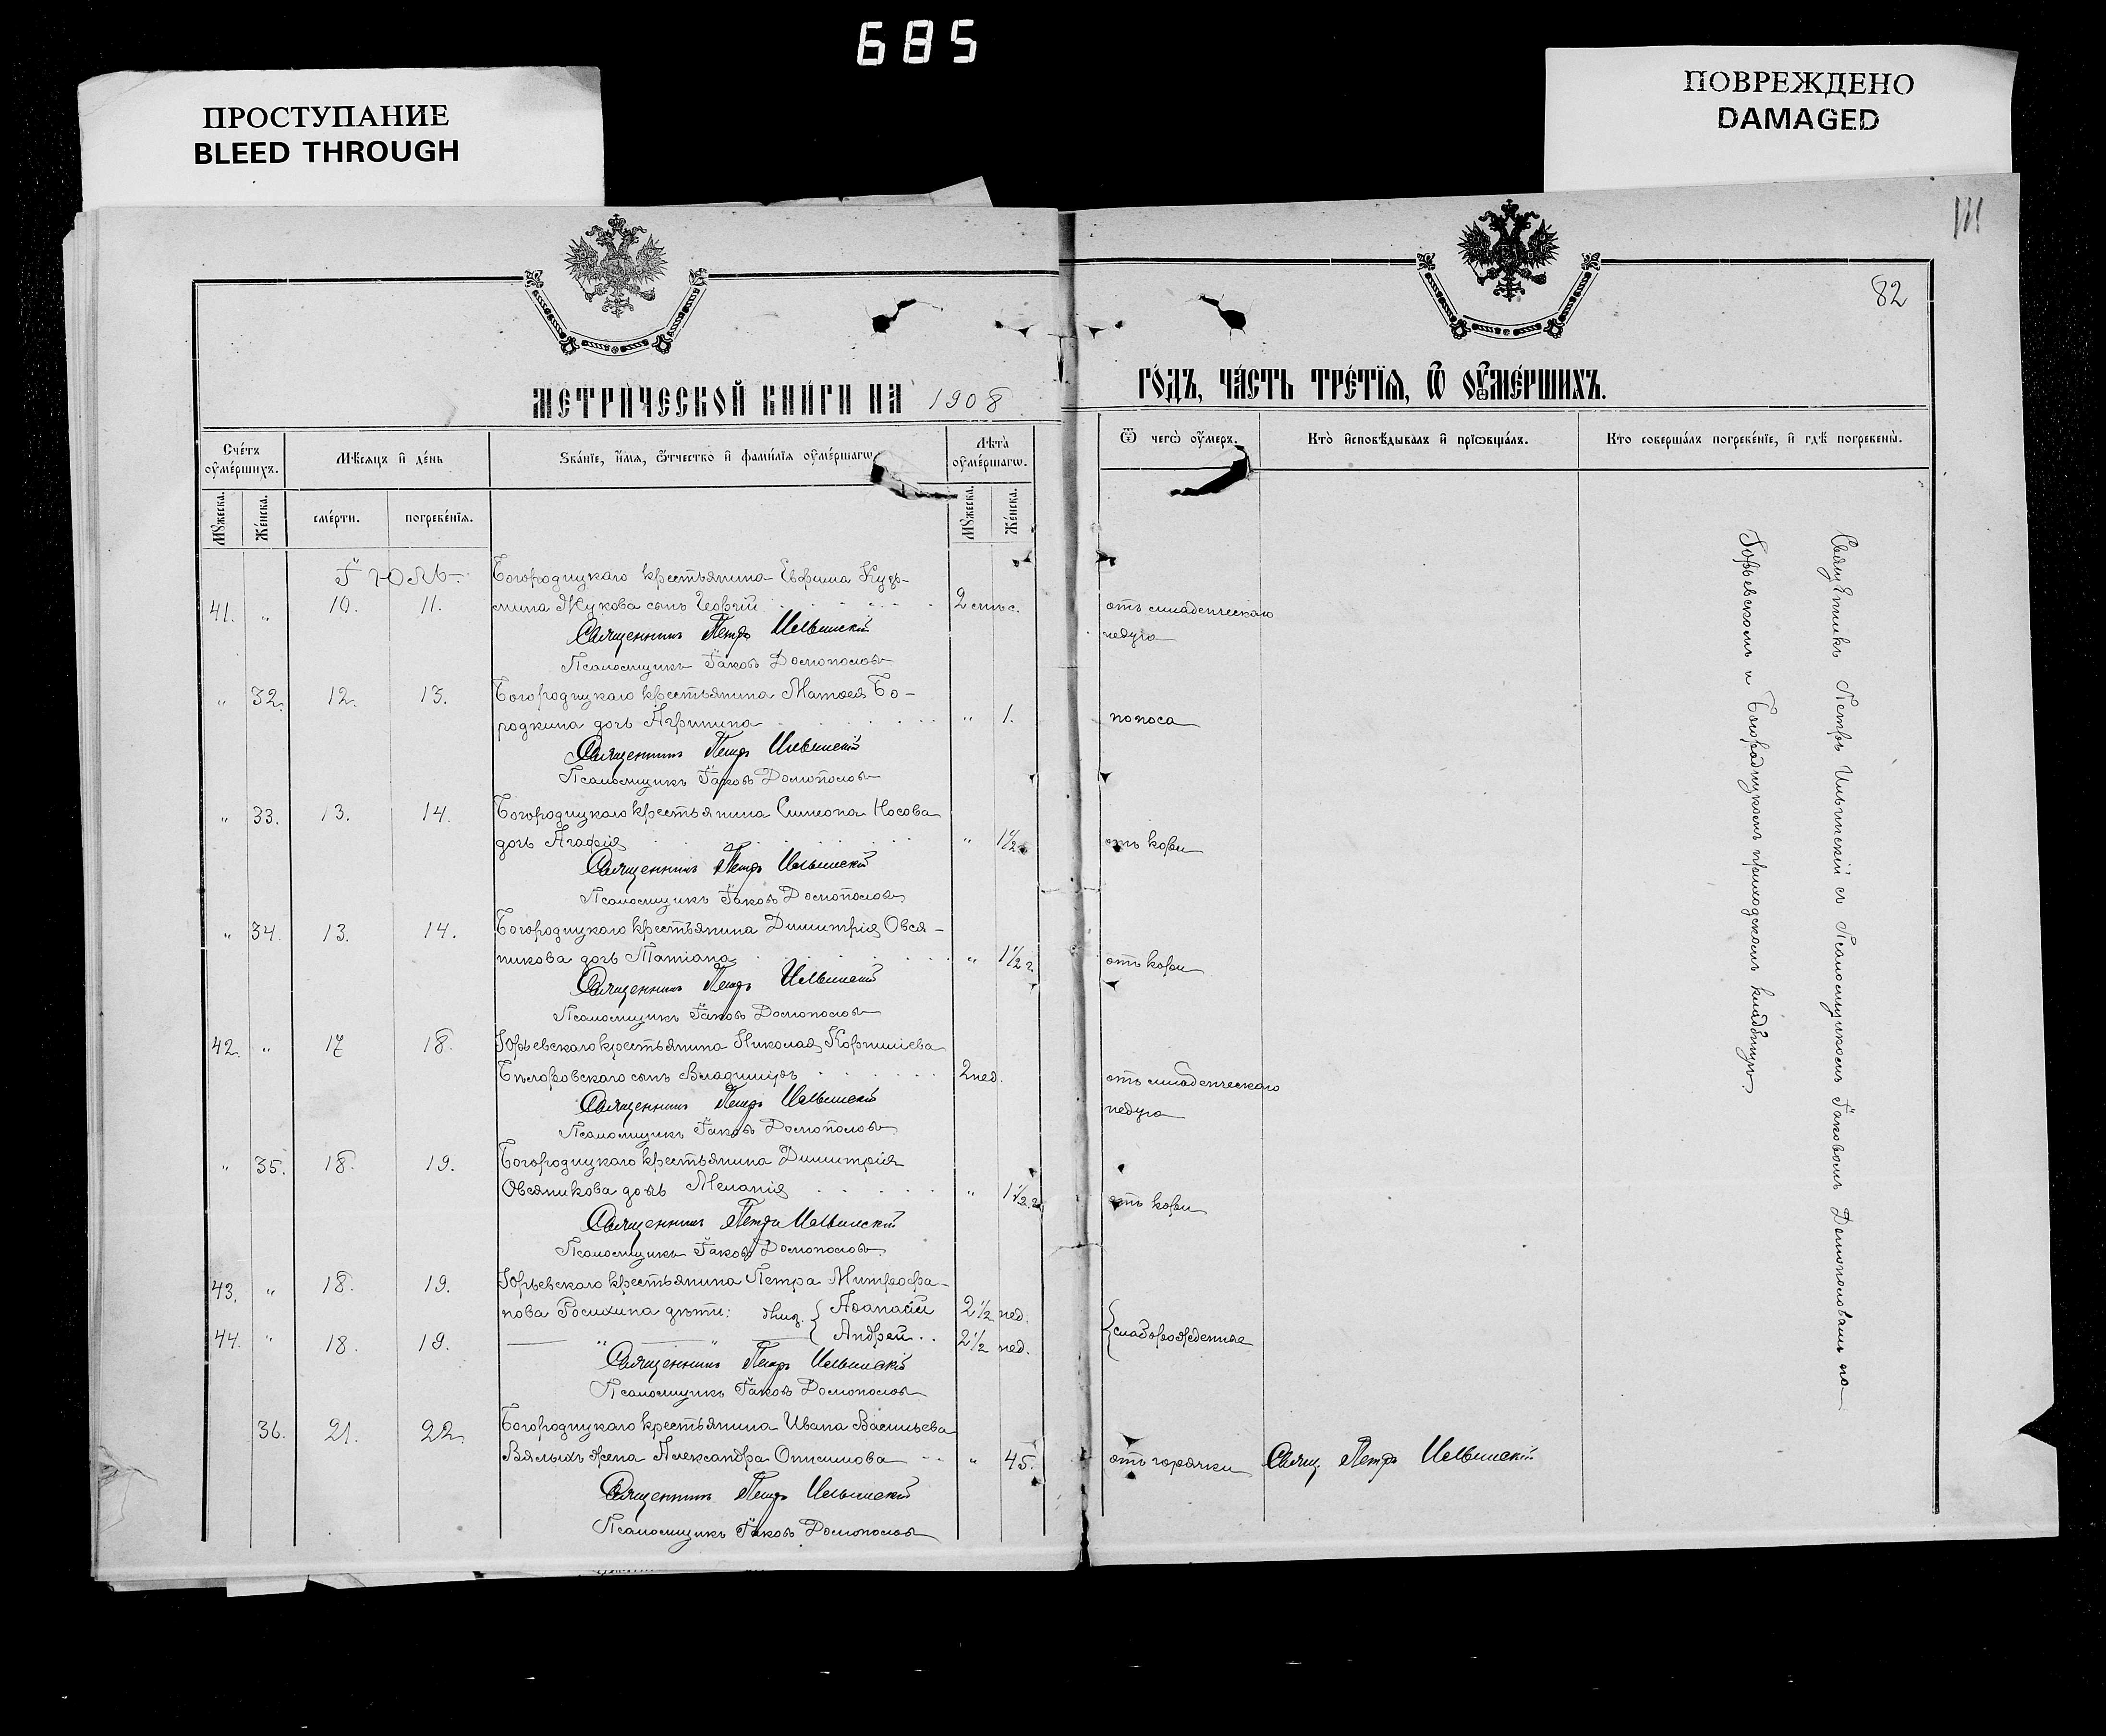 685
ПРОСТУПАНИЕ
BLEED THROUGH
ПОВРЕЖДЕНО
DAMAGED
82
МЕТРИЧЕСКОЙ КНИГИ НА 1908 ГОДЪ, ЧАСТЬ ТРЕТІЯ, Ѿ ОУМЕРШИХЪ.
Счетъ оумершихъ.
Мѣсяцъ и день
Званіе, имя, ѿчество и фамилія оумершагѡ
Лѣта оумершагѡ.
Ѿ чегѡ оумеръ.
Кто исповѣдывалъ и пріѡбщалъ.
Кто совершалъ погребеніе, и гдѣ погребены.
Мужеска. Женска. смерти. погребенія. Мужеска. Женска.
Іюль
Богородицкаго крестьянина Евфима Кузь-
41. " 10. 11. мина Жукова сынъ Георгій 2 мѣс. отъ младенческаго
недуга
Священникъ Петръ Ильинскій
Псаломщикъ Іаковъ Домополовъ
" 32. 12. 13. Богородицкаго крестьянина Матѳея Бо-
родкина дочь Агрипина " 1. поноса
Священникъ Петръ Ильинскій
Псаломщикъ Іаковъ Домополовъ
" 33. 13. 14. Богородицкаго крестьянина Симеона Носова
дочь Агафія " 1½ отъ кори
Священникъ Петръ Ильинскій
Псаломщикъ Іаковъ Домополовъ
" 34. 13. 14. Богородицкаго крестьянина Димитрія Овся-
никова дочь Татіана " 1½ г. отъ кори
Священникъ Петръ Ильинскій
Псаломщикъ Іаковъ Домополовъ
42. " 17 18. Юрьевскаго крестьянина Николая Корниліева
Бѣлоровскаго сынъ Владиміръ 2 нед. отъ младенческаго
недуга
Священникъ Петръ Ильинскій
Псаломщикъ Іаковъ Домополовъ
" 35. 18. 19. Богородицкаго крестьянина Димитрія
Овсяникова дочь Меланія " 1½ г. отъ кори
Священникъ Петръ Ильинскій
Псаломщикъ Іаковъ Домополовъ
43. " 18. 19. Юрьевскаго крестьянина Петра Митрофа-
нова Росихина дѣти: близ. { Аѳанасій 2½ нед.
44. " 18 19. — " — " — Андрей 2½ нед. { слаборожденные
Священникъ Петръ Ильинскій
Псаломщикъ Іаковъ Домополовъ
36. 21. 22. Богородицкаго крестьянина Ивана Васильева
Вялыхъ жена Александра Онисимова " 45. отъ горячки Свящ. Петръ Ильинскій
Священникъ Петръ Ильинскій
Псаломщикъ Іаковъ Домополовъ
Священникъ Петръ Ильинскій съ Псаломщикомъ Іаковомъ Домополовымъ на
Юрьевскомъ и Богородицкомъ приходскомъ кладбищѣ